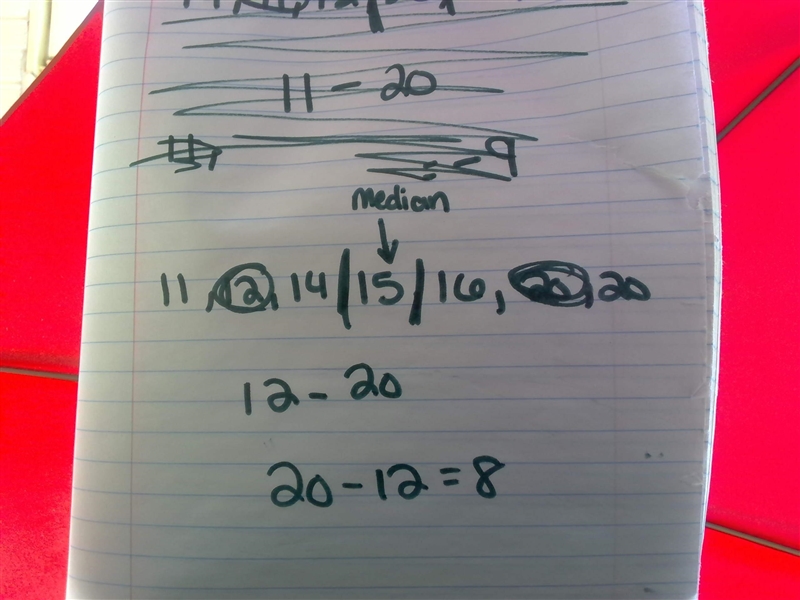 11 - 20
9
median
11, 12, 14 | 15 | 16, 20, 20
12 - 20
20 - 12 = 8